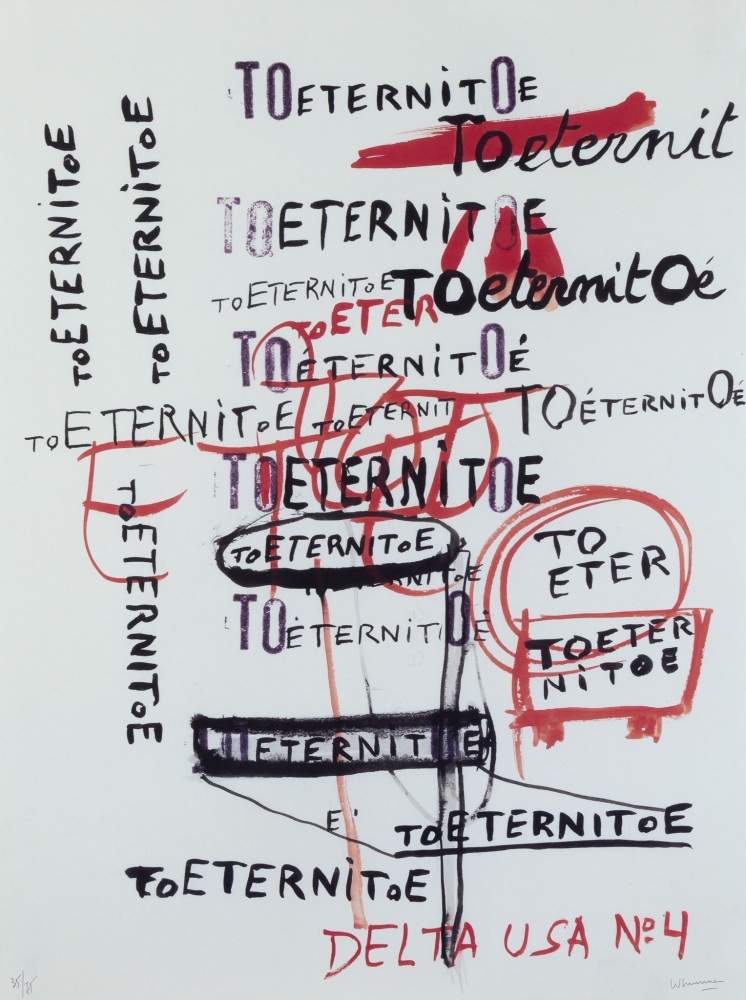 TOETERNiTOE
Toeternit
TOETERNiTOE
TOETERNiTOE
TOETERNITOE
TOETERNiTOE
TOeternitOé
TOETERNiToE
TOETER
TOÉTERNiTOÉ
TOETERNiTOE
TOETERNIT
TOÉTERNiTOÉ
TOETERNiTOE
TOETERNITOE
TOETERNITOE
TOETERNiTOE
TO
ETER
TOETERNITOE
TOETER
NiTOE
TOETERNITOE
E'
TOETERNITOE
TOETERNiTOE
DELTA USA Nº4
35/75